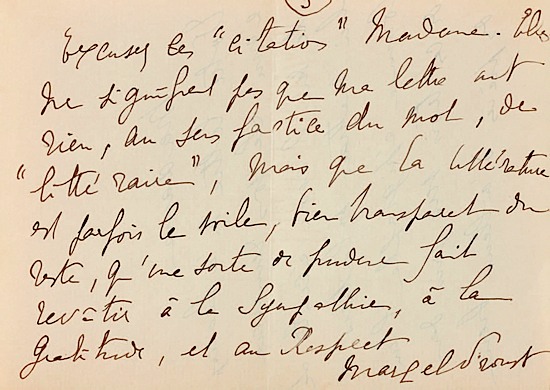 3
Excusez ces "citations" Madame. Elles
ne signifient pas que ma lettre ait
rien, au sens factice du mot, de
"littéraire", mais que la littérature
est parfois le voile, bien transparent du
reste, qu'une sorte de pudeur fait
revêtir à la Sympathie, à la
Gratitude, et au Respect
Marcel Proust